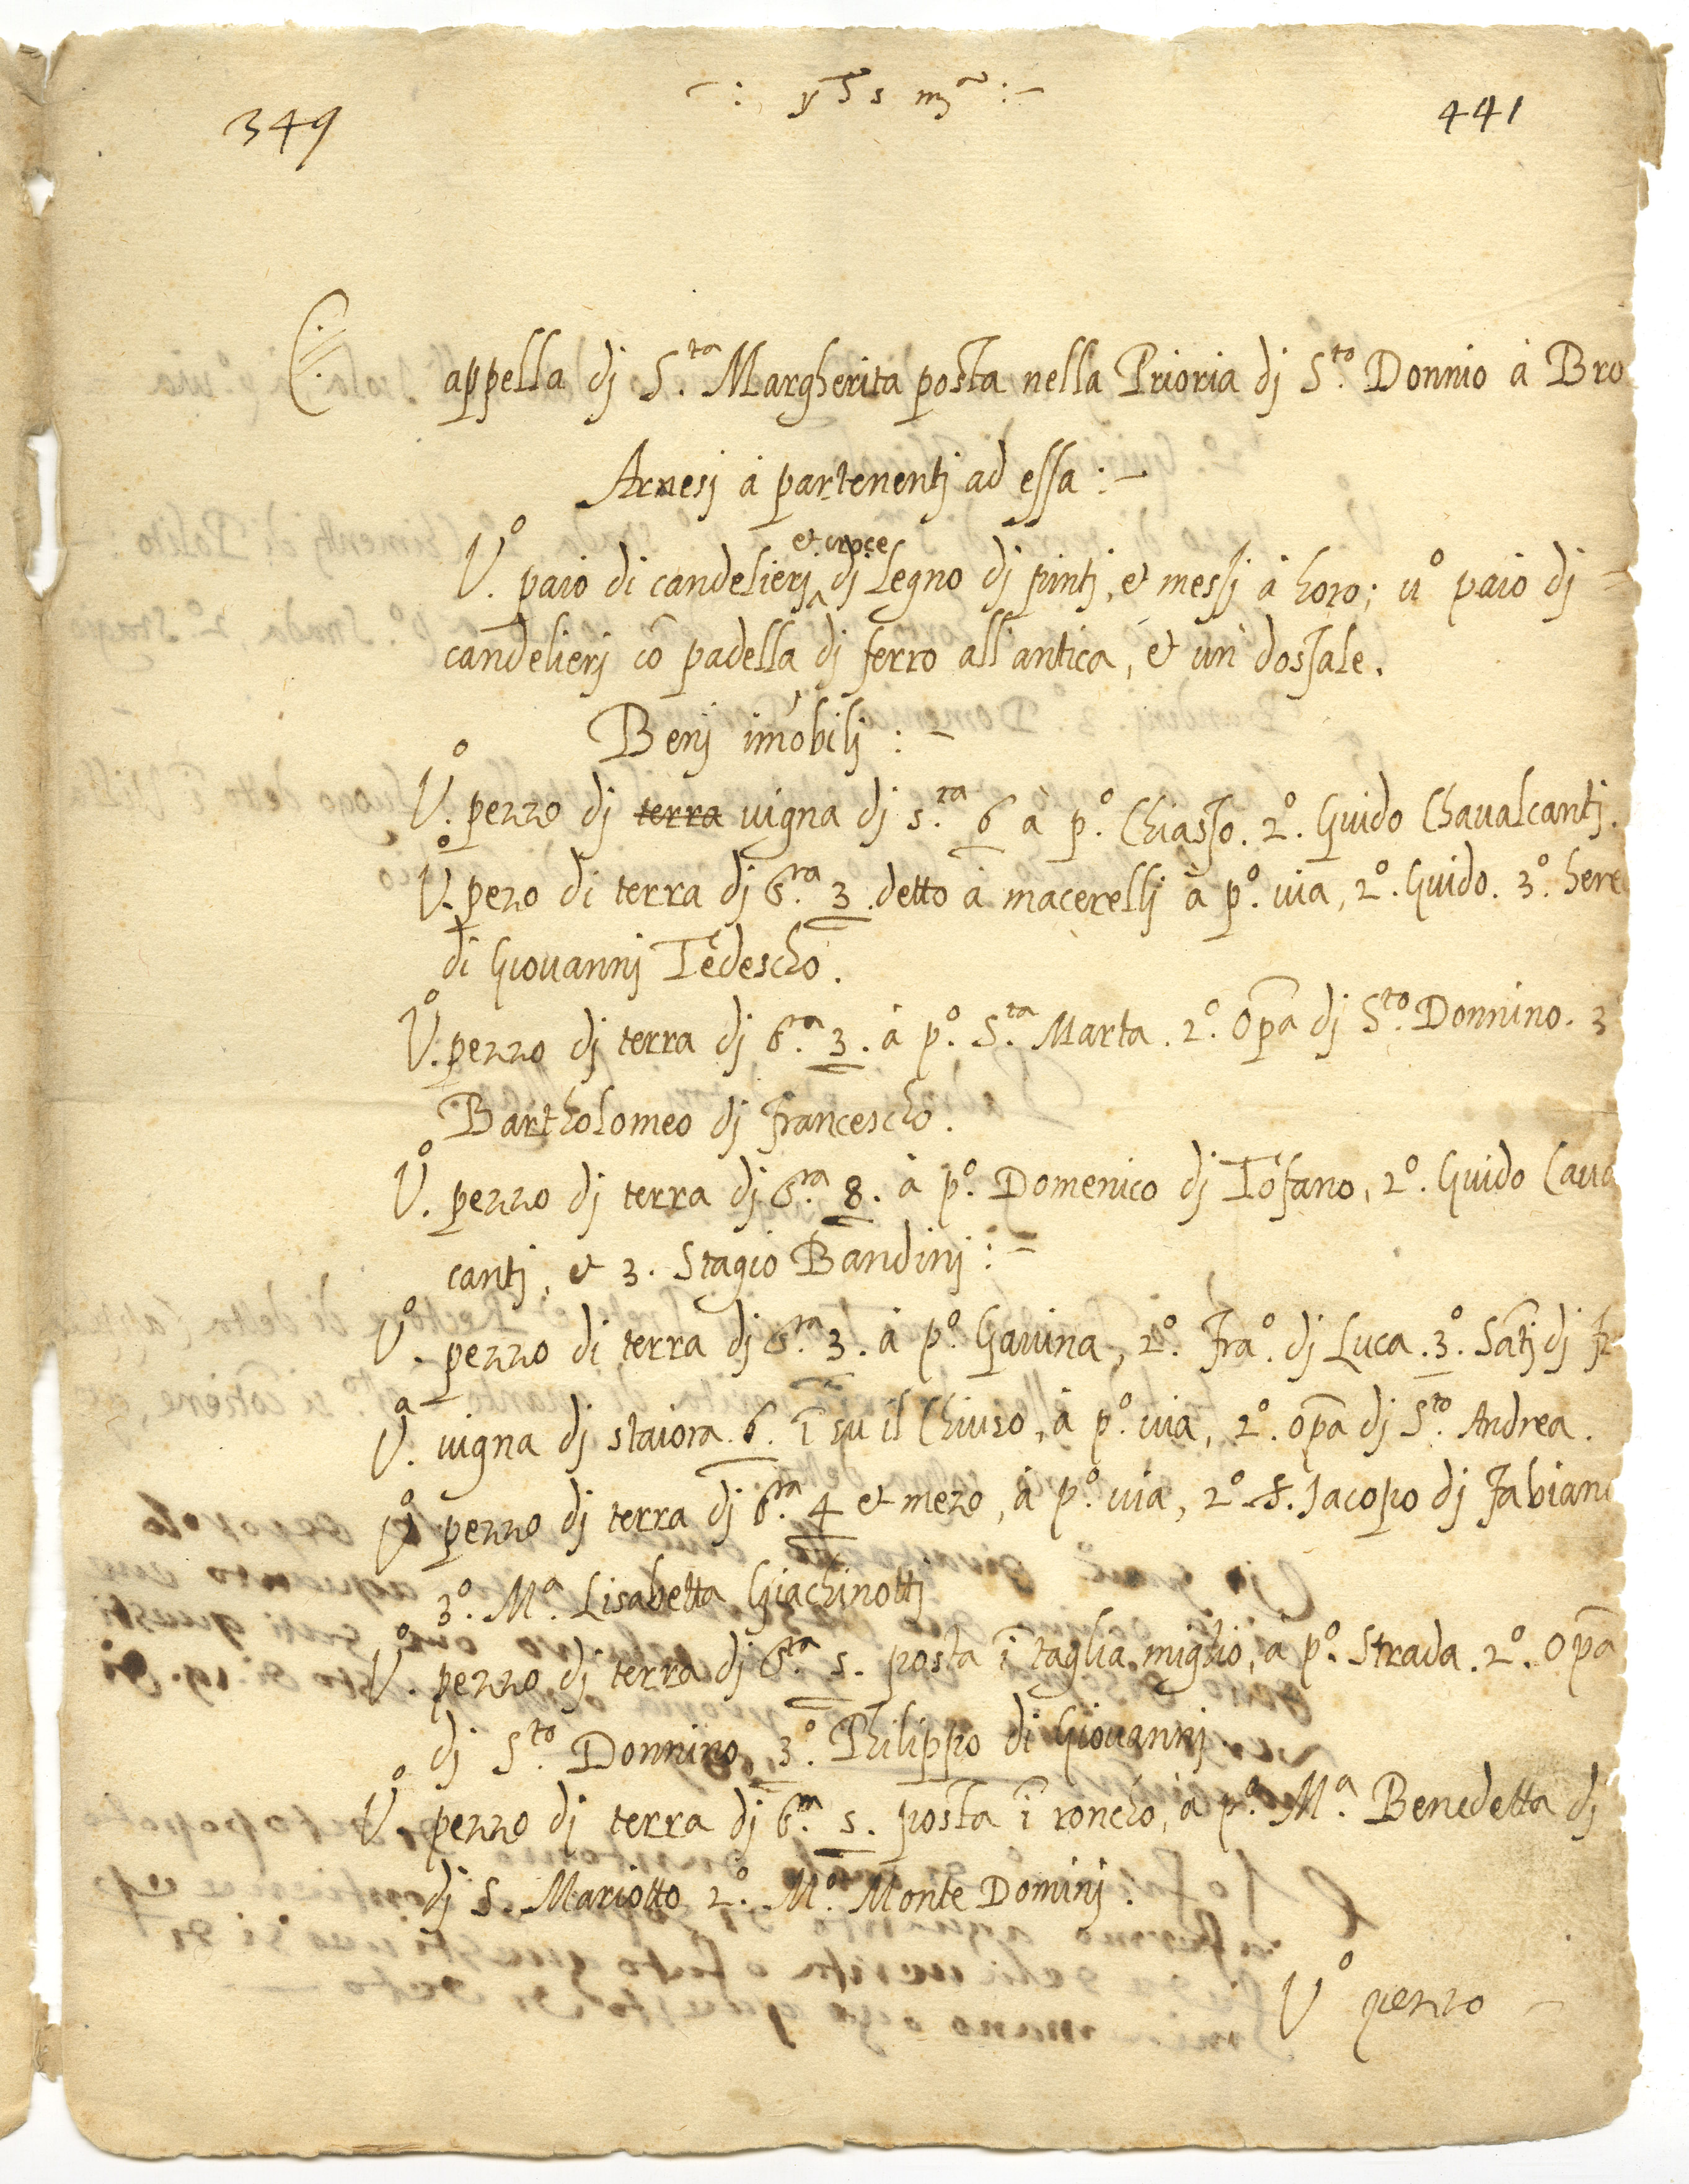 -: yhs mª :-
349
441
Cappella dj S.ta Margherita posta nella Prioria dj S.to Donnio à Bro
Arnesj à partenentj ad essa :-
Vo. paio di candelierj et croce dj legno dj pintj, et messj à horo; uo paio dj
candelierj cō padella dj ferro all'antica, et un dossale.
Benj imobilj :-
Vo. pezzo di terra uigna dj s.ra 6 à po. Chiasso. 2o. Guido Chaualcantj.
Vo. pezo di terra dj s.ra 3. detto à macerellj à po. uia, 2o. Guido. 3o. here
di Giouannj Tedescho.
Vo. pezzo dj terra dj s.ra 3. à po. S.ta Marta. 2o. Opa dj S.to Donnino. 3
Bartholomeo dj francescho.
Vo. pezzo dj terra dj s.ra 8. à po. Domenico dj Tofano, 2o. Guido Caua
cantj, et 3. Stagio Bandinj :-
Vo. pezzo di terra dj s.ra 3. à po Gauina, 2o. Frao. dj Luca. 3o. Sātj dj fr
Va. uigna dj staiora 6. ī su il Chiuso, à po. uia, 2o. opa dj S.to Andrea.
Vo pezzo dj terra dj s.ra 4 et mezo, à po. uia, 2o. S. Jacopo dj Fabiano
3o. Ma. Lisabetta Giachinottj
Vo. pezzo dj terra dj s.ra 5. posta ī taglia miglio, à po. Strada. 2o. Opa
dj S.to Donnino 3o. Philippo di Giouannj.
Vo. pezzo di terra dj s.ra 5. posta ī roncho, à po. Ma. Benedetta dj
dj S. Mariotto 2o. Mo. Monte Dominj.
Vo pezzo -